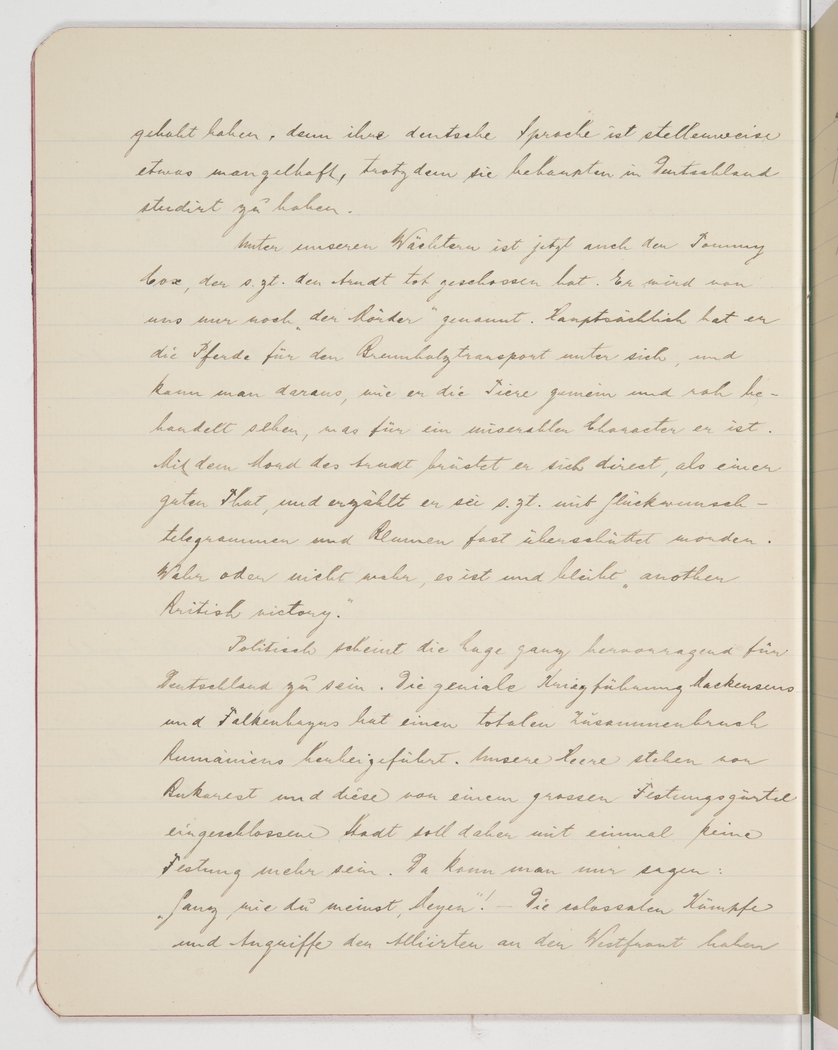 gehabt haben, denn ihre deutsche Sprache ist stellenweise
etwas mangelhaft, trotzdem sie behaupten in Deutschland
studirt zu haben.
Unter unseren Wächtern ist jetzt auch der Tommy
Cox, der s. zt. den Arndt tot geschossen hat. Er wird von
uns nur noch „der Mörder" genannt. Hauptsächlich hat er
die Pferde für den Brennholztransport unter sich, und
kann man daraus, wie er die Tiere gemein und roh be-
handelt sehen, was für ein miserabler Character er ist.
Mit dem Mord des Arndt brüstet er sich direct, als einer
guten That, und erzählt er sei s. zt. mit Glückwunsch-
telegrammen und Blumen fast überschüttet worden.
Wahr oder nicht wahr, es ist und bleibt „another
British victory."
Politisch scheint die Lage ganz hervorragend für
Deutschland zu sein. Die geniale Kriegführung Mackensens
und Falkenhayns hat einen totalen Zusammenbruch
Rumäniens herbeigeführt. Unsere Heere stehen vor
Bukarest und diese von einem grossen Festungsgürtel
eingeschlossene Stadt soll daher mit einmal keine
Festung mehr sein. Da kann man nur sagen:
„Ganz wie du meinst, "! – Die colossalen Kämpfe
und Angriffe der Alliirten an der Westfront haben